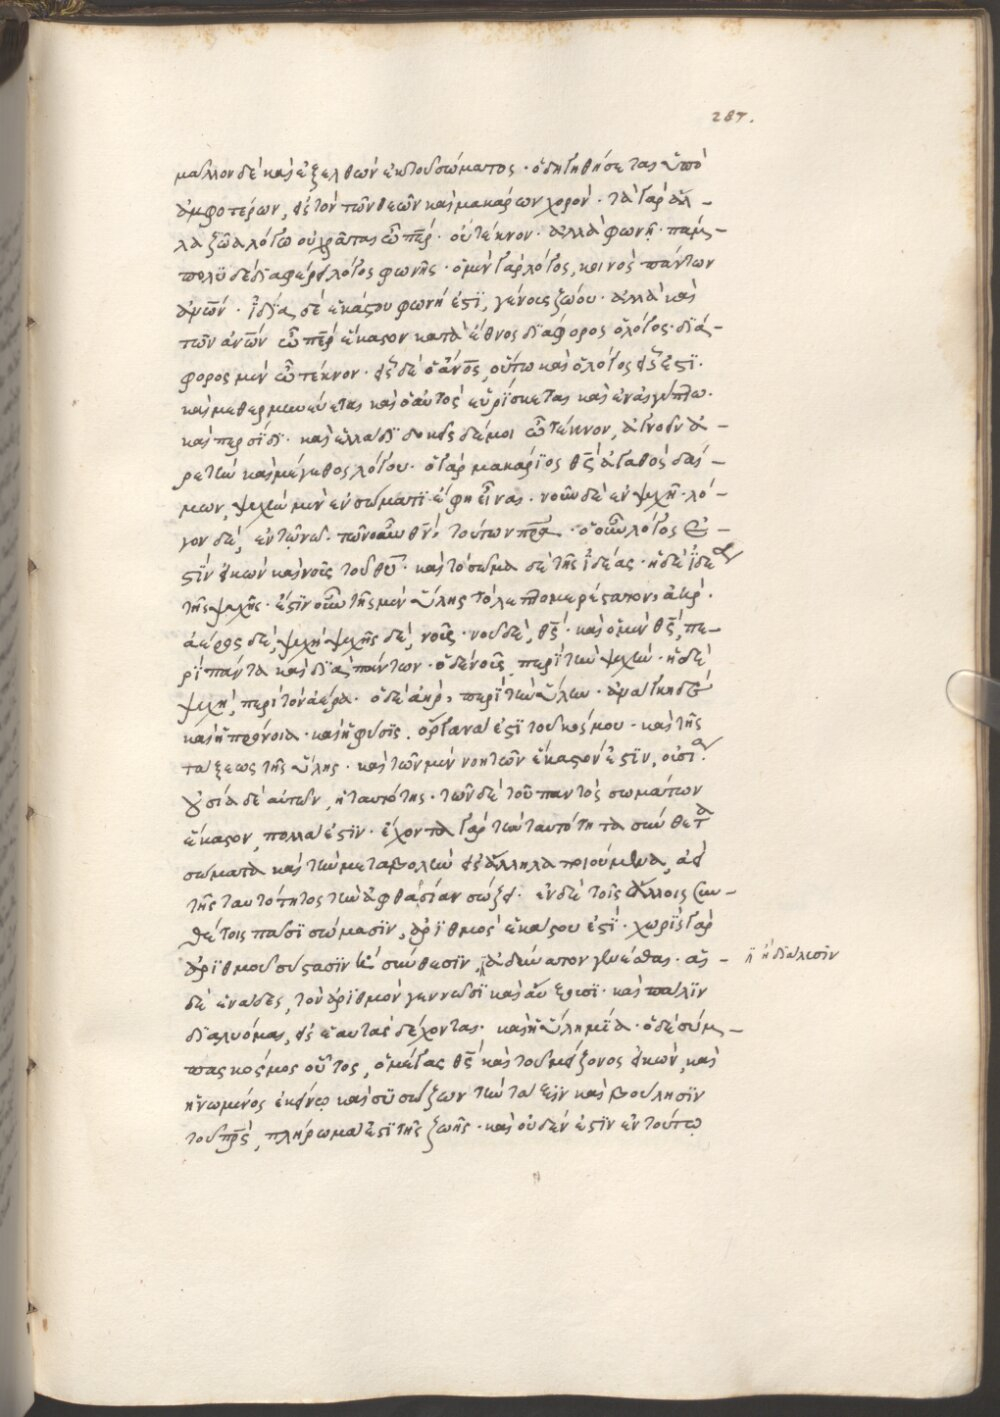 287.
μᾶλλον δὲ καὶ ἐξελθὼν ἐκ τοῦ σώματος· ὁδηγηθήσεται ὑπὸ
ἀμφοτέρων, εἰς τὸν τῶν θεῶν καὶ μακάρων χορόν· τὰ γὰρ ἄλ-
λα ζῶα λόγω οὐ χρᾶται ὦ περ· οὐ τέκνον· ἀλλὰ φωνῆ· πάμ-
πολϋ δὲ διαφέρει λόγος φωνῆς· ὁ μὲν γὰρ λόγος, κοινὸς πάντων
ἀνων· ἰδία δὲ ἑκάστου φωνή ἐστϊ, γένους ζώου· ἀλλὰ καὶ
τῶν ἀνων ὦ περ ἕκαστον κατὰ ἔθνος διάφορος ὁ λόγος· διά-
φορος μὲν ὦ τέκνον· εἷς δὲ ὁ ἀνος, οὕτω καὶ ὁ λόγος εἷς ἐστϊ·
καὶ μεθερμηνεύεται καὶ ὁ αὐτὸς εὑρίσκεται καὶ ἐν αἰγύπτω·
καὶ περσίδι· καὶ ἑλλάδι δοκεῖς δέ μοι ὦ τέκνον, ἀγνοεῖν ἀ-
ρετὴν καὶ μέγεθος λόγου· ὁ γὰρ μακάριος θς ἀγαθὸς δαί-
μων, ψυχὴν μὲν ἐν σώματι ἔφη εἶναι· νοῦν δὲ ἐν ψυχῆ· λό-
γον δὲ, ἐν τῶ νῶ· τὸν οὖν θν, τούτων πρα· ὁ οὖν λόγος ἐ-
στϊν εἰκὼν καὶ νοῦς τοῦ θυ· καὶ τὸ σῶμα δὲ τῆς ἰδέας· ἡ δὲ ἰδέα
τῆς ψυχῆς· ἔστϊν οὖν τῆς μὲν ὕλης τὸ λεπτομερέστατον, ἀήρ·
ἀέρος δὲ, ψυχὴ ψυχῆς δὲ, νοῦς· νοῦ δὲ, θς· καὶ ὁ μὲν θς, πε-
ρὶ πάντα καὶ διὰ πάντων· ὁ δὲ νοῦς, περὶ τὴν ψυχήν· ἡ δὲ
ψυχὴ, περὶ τὸν ἀέρα· ὁ δὲ ἀὴρ, περὶ τὴν ὕλην· ἀνάγκη δὲ
καὶ ἡ πρόνοια· καὶ ἡ φύσϊς· ὄργανά ἐστϊ τοῦ κόσμου· καὶ τῆς
τάξεως τῆς ὕλης· καὶ τῶν μὲν νοητῶν ἕκαστον ἐστϊν, οὐσία
οὐσία δὲ αὐτῶν, ἡ ταυτότης· τῶν δὲ τοῦ παντὸς σωμάτων
ἕκαστον, πολλά ἐστϊν· ἔχοντα γὰρ τὴν ταυτότητα τὰ σύνθετα
σώματα καὶ τὴν μεταβολὴν εἰς ἄλληλα ποιούμενα, ἀεὶ
τῆς ταυτότητος τὴν ἀφθαρσίαν σώζει· ἐν δὲ τοῖς ἄλλοις συν-
θέτοις πᾶσϊ σώμασϊν, ἀριθμὸς ἑκάστου ἐστϊ· χωρὶς γὰρ
ἀριθμοῦ σύστασϊν ἢ σύνθεσϊν, ἀδύνατον γενέσθαι· αἱ - ἢ ἡ διάλυσϊν
δὲ ἑνάδες, τὸν ἀριθμὸν γεννῶσϊ καὶ αὔξουσϊ· καὶ πάλϊν
διαλυόμεναι, εἰς ἑαυτὰς δέχονται· καὶ ἡ ὕλη μϊα· ὁ δὲ σύμ-
πας κόσμος οὗτος, ὁ μέγας θς καὶ τοῦ μείζονος εἰκὼν, καὶ
ἡνωμένος ἐκείνω καὶ συσώζων τὴν τάξϊν καὶ βούλησϊν
τοῦ πρς, πλήρωμά ἐστϊ τῆς ζωῆς· καὶ οὐδέν ἐστϊν ἐν τούτω